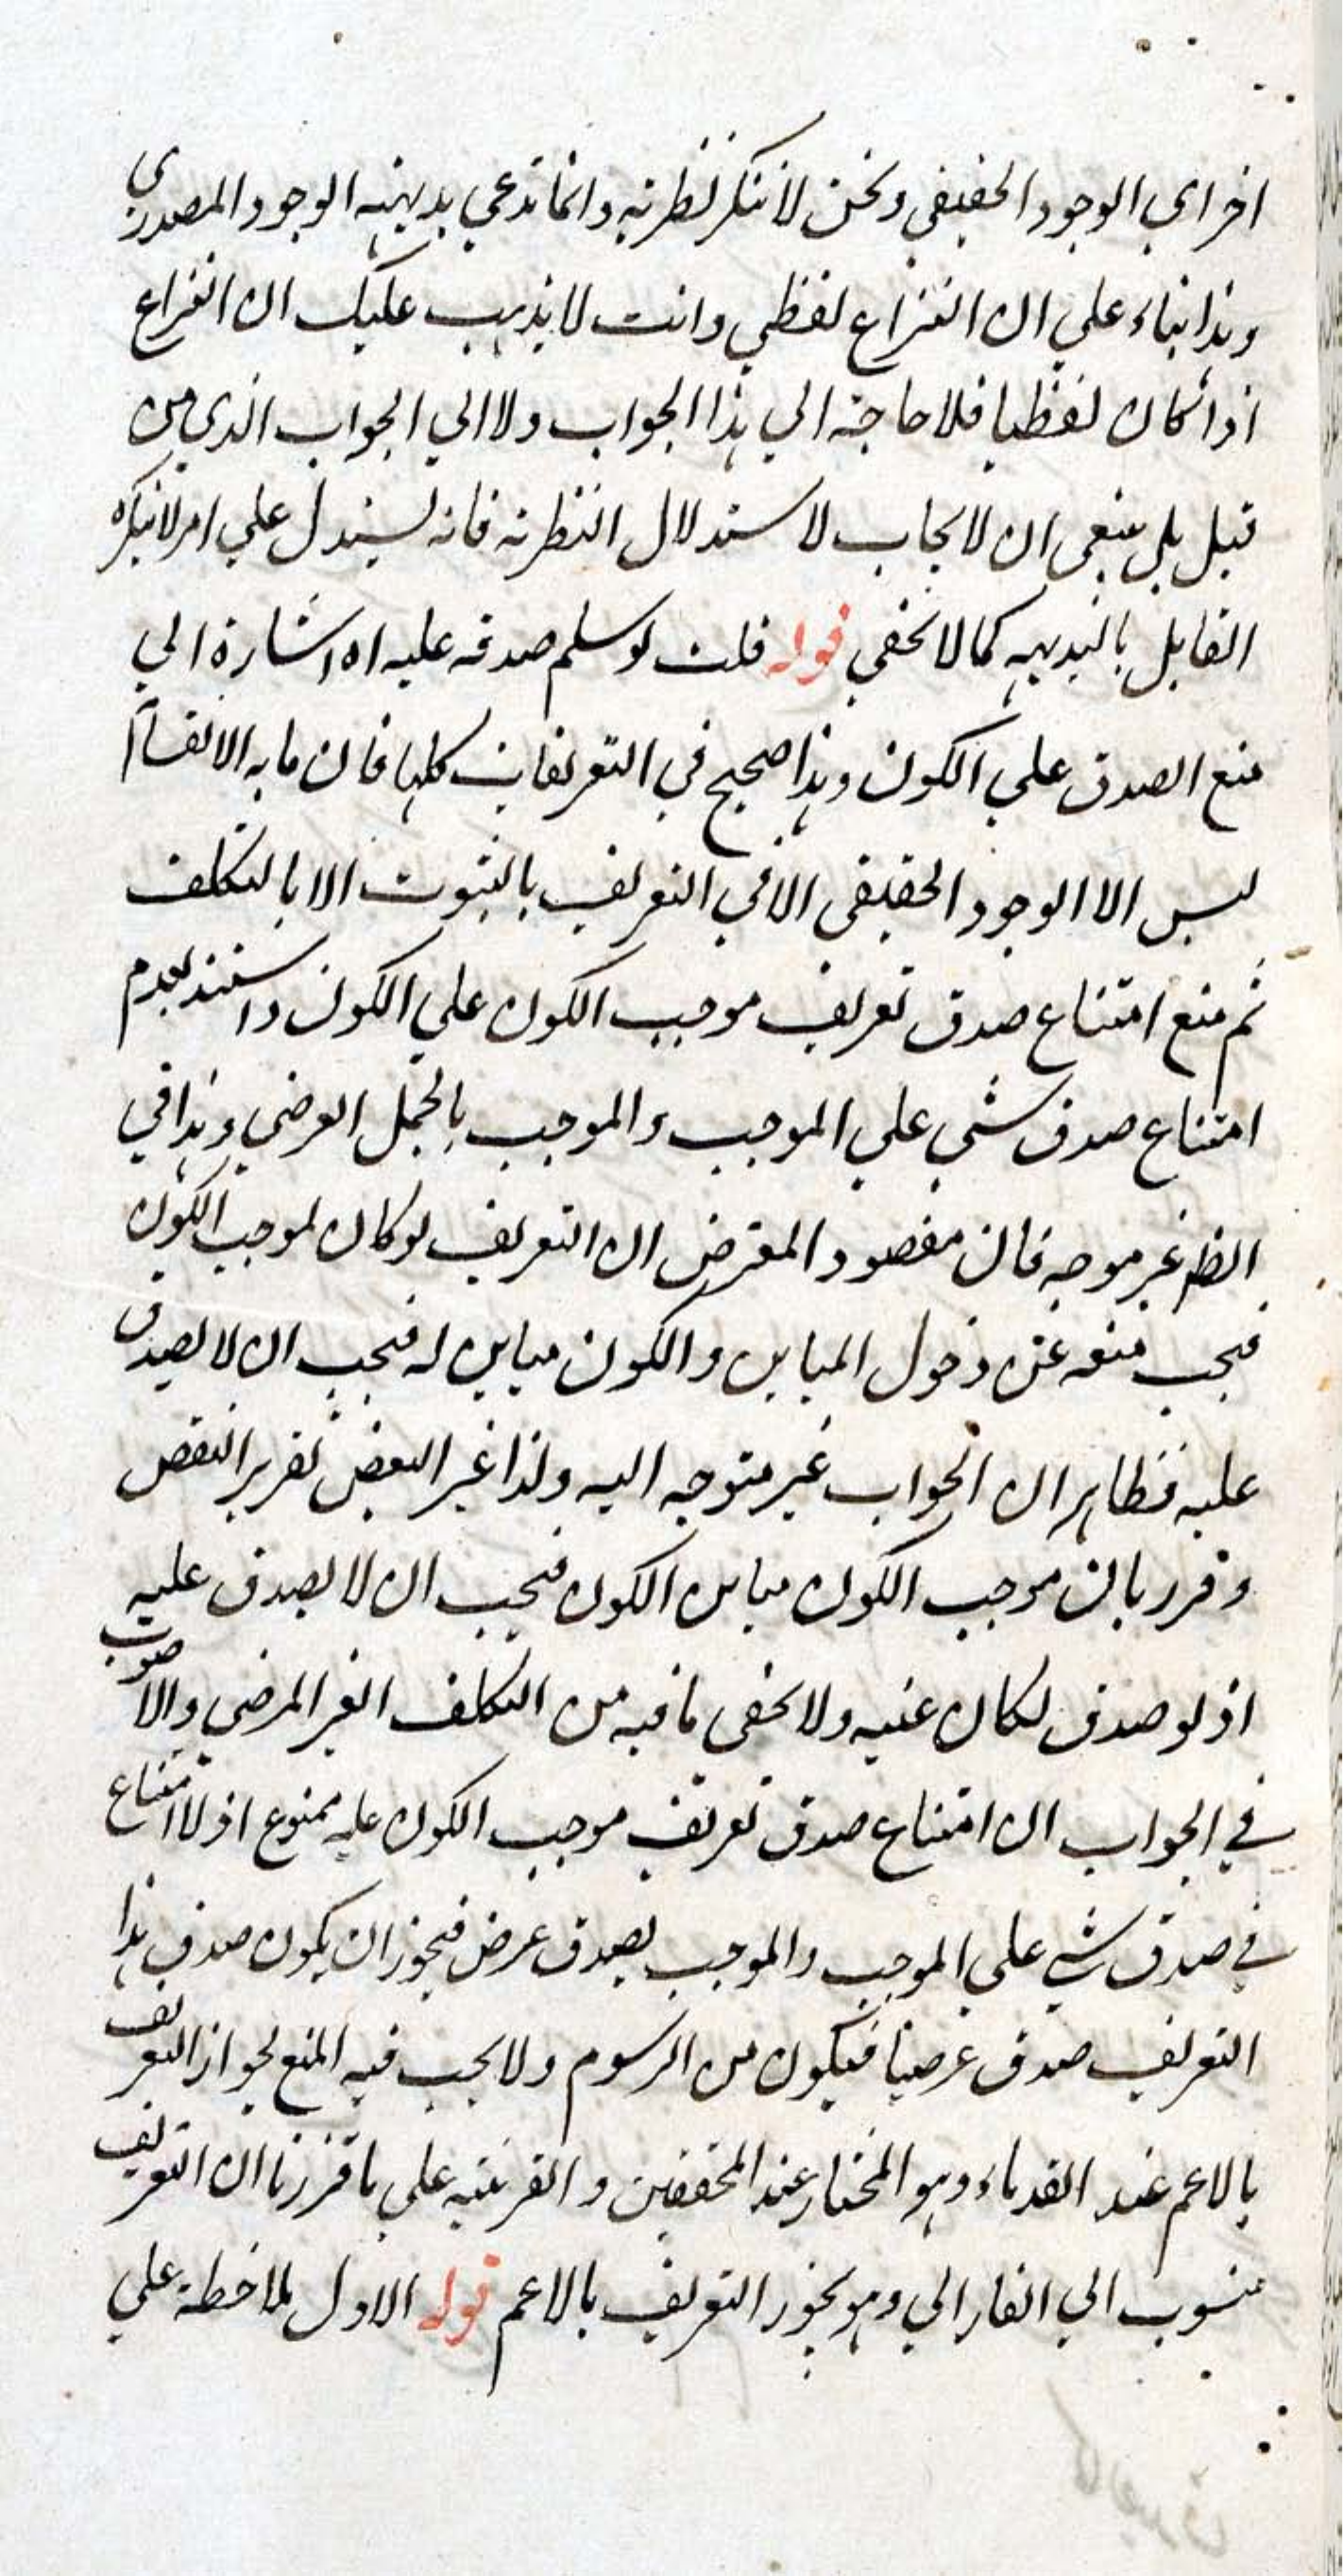 اخر اي الوجود الحقيقي ونحن لا ننكر نظريته وانما ندعي بديهية الوجود المصدري
وهذا بناء علي ان النزاع لفظي وانت لا يذهب عليك ان النزاع
اذا كان لفظيا فلا حاجة الي هذا الجواب ولا الي الجواب الذي من
قبل بل ينبغي ان لا يجاب لاستدلال النظرية فانه يستدل علي امر لا ينكره
القايل بالبديهية كما لا يخفي قوله قلت لو سلم صدقه عليه اه اشارة الي
منع الصدق علي الكون وهذا صحيح في التعريفات كلها فان ما به الانقسام
ليس الا الوجود الحقيقي الا في التعريف بالثبوت الا بالتكلف
ثم منع امتناع صدق تعريف موجب الكون علي الكون واستند بعدم
امتناع صدق شي علي الموجب والموجب بالحمل العرضي وهذا في
الظ غير موجه فان مقصود المعترض ان التعريف لو كان لموجب الكون
فيجب منعه عن دخول المباين والكون مباين له فيجب ان لا يصدق
عليه فظاهر ان الجواب غير متوجه اليه ولذا غير البعض تقرير النقض
وقرر بان موجب الكون مباين الكون فيجب ان لا يصدق عليه
اذ لو صدق لكان عينه ولا يخفي ما فيه من التكلف الغير المرضي والاصوب
في الجواب ان امتناع صدق تعريف موجب الكون عليه ممنوع اذ لا امتناع
في صدق شي علي الموجب والموجب بصدق عرض فيجوز ان يكون صدق هذا
التعريف صدق عرضيا فيكون من الرسوم ولا يجب فيه المنع لجواز التعريف
بالاعم عند القدماء وهو المختار عند المحققين والقرينة علي ما قررنا ان التعريف
منسوب الي الفارابي وهو يجوز التعريف بالاعم قوله الاول بملاحظة علي